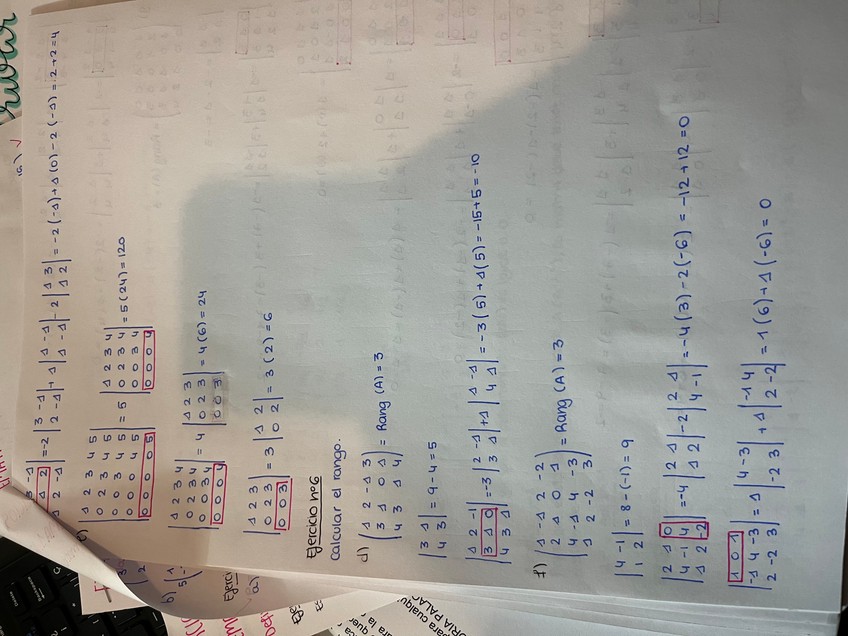 = -2 | 3 -1 ; 2 -1 | + 1 | 1 -1 ; 1 -1 | - 2 | 1 3 ; 1 2 | = -2(-1) + 1(0) - 2(-1) = 2+2 = 4
e) | 1 2 3 4 5 ; 0 2 3 4 5 ; 0 0 3 4 5 ; 0 0 0 4 5 ; 0 0 0 0 5 | = 5 | 1 2 3 4 ; 0 2 3 4 ; 0 0 3 4 ; 0 0 0 4 | = 5(24) = 120
| 1 2 3 4 ; 0 2 3 4 ; 0 0 3 4 ; 0 0 0 4 | = 4 | 1 2 3 ; 0 2 3 ; 0 0 3 | = 4(6) = 24
| 1 2 3 ; 0 2 3 ; 0 0 3 | = 3 | 1 2 ; 0 2 | = 3(2) = 6
Ejercicio nº6
Calcular el rango.
d) ( 1 2 -1 3 ; 3 1 0 1 ; 4 3 1 4 ) = Rang (A) = 3
| 3 1 ; 4 3 | = 9 - 4 = 5
| 1 2 -1 ; 3 1 0 ; 4 3 1 | = -3 | 2 -1 ; 3 1 | + 1 | 1 -1 ; 4 1 | = -3(5) + 1(5) = -15+5 = -10
f) ( 1 -1 2 -2 ; 2 1 0 1 ; 4 -1 4 -3 ; 1 2 -2 3 ) = Rang (A) = 3
| 4 -1 ; 1 2 | = 8 - (-1) = 9
| 2 1 0 ; 4 -1 4 ; 1 2 -2 | = -4 | 2 1 ; 1 2 | - 2 | 2 1 ; 4 -1 | = -4(3) - 2(-6) = -12+12 = 0
| 1 0 1 ; -1 4 -3 ; 2 -2 3 | = 1 | 4 -3 ; -2 3 | + 1 | -1 4 ; 2 -2 | = 1(6) + 1(-6) = 0